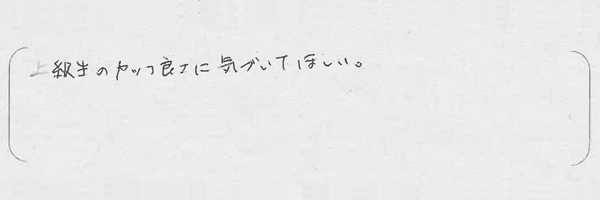 上級生のカッコ良さに気づいてほしい。